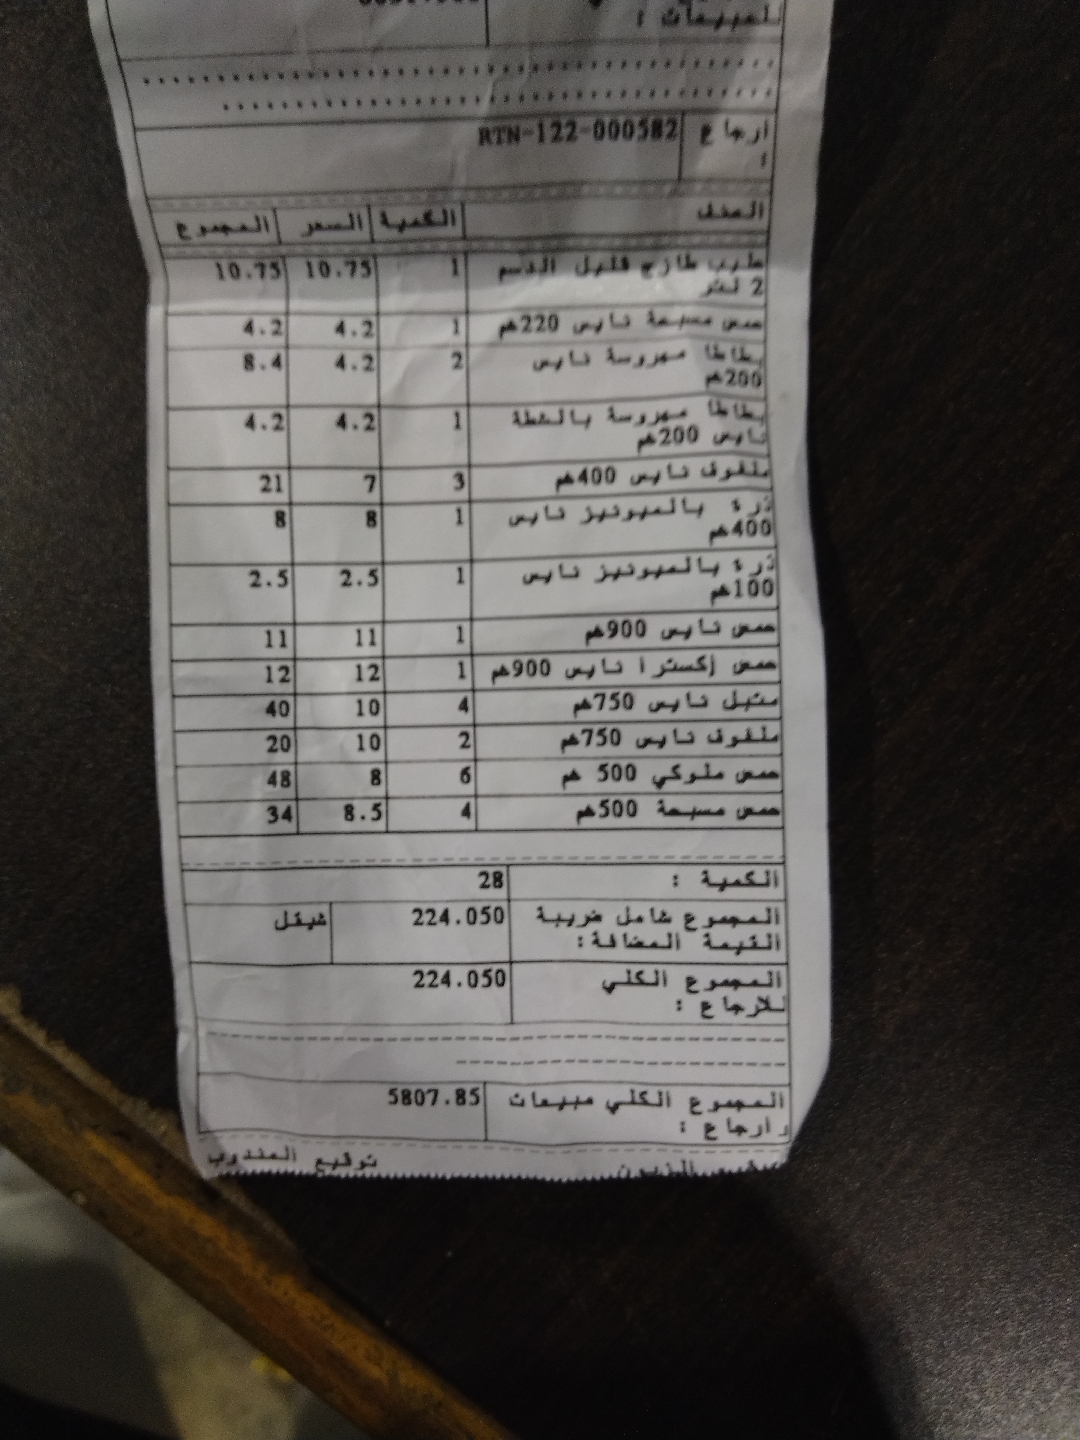 للمبيعات :
أرجاع : RTN-122-000582
الصنف الكمية السعر المجموع
حليب طازج قليل الدسم 1 10.75 10.75
2 لتر
حمص مسبحة نايس 220غم 1 4.2 4.2
بطاطا مهروسة نايس 2 4.2 8.4
200غم
بطاطا مهروسة بالشطة 1 4.2 4.2
نايس 200غم
ملفوف نايس 400غم 3 7 21
ذرة بالميونيز نايس 1 8 8
400غم
ذرة بالميونيز نايس 1 2.5 2.5
100غم
حمص نايس 900غم 1 11 11
حمص إكسترا نايس 900غم 1 12 12
متبل نايس 750غم 4 10 40
ملفوف نايس 750غم 2 10 20
حمص ملوكي 500 غم 6 8 48
حمص مسبحة 500غم 4 8.5 34
الكمية : 28
المجموع شامل ضريبة 224.050 شيقل
القيمة المضافة:
المجموع الكلي 224.050
للارجاع :
المجموع الكلي مبيعات 5807.85
وارجاع :
الزبون توقيع المندوب